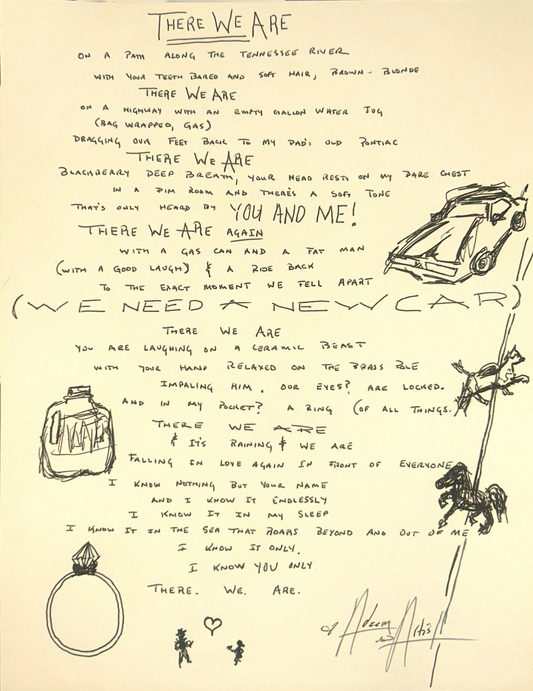 THERE WE ARE
ON A PATH ALONG THE TENNESSEE RIVER
WITH YOUR TEETH BARED AND SOFT HAIR, BROWN-BLONDE
THERE WE ARE
ON A HIGHWAY WITH AN EMPTY GALLON WATER JUG
(BAG WRAPPED, GAS)
DRAGGING OUR FEET BACK TO MY DAD'S OLD PONTIAC
THERE WE ARE
BLACKBERRY DEEP BREATH, YOUR HEAD RESTS ON MY BARE CHEST
IN A DIM ROOM AND THERE'S A SOFT TONE
THAT'S ONLY HEARD BY YOU AND ME!
THERE WE ARE AGAIN
WITH A GAS CAN AND A FAT MAN
(WITH A GOOD LAUGH) & A RIDE BACK
TO THE EXACT MOMENT WE FELL APART
(WE NEED A NEW CAR)
THERE WE ARE
YOU ARE LAUGHING ON A CERAMIC BEAST
WITH YOUR HAND RELAXED ON THE BRASS POLE
IMPALING HIM. OUR EYES? ARE LOCKED.
AND IN MY POCKET? A RING (OF ALL THINGS.
THERE WE ARE
& IT'S RAINING & WE ARE
FALLING IN LOVE AGAIN IN FRONT OF EVERYONE
I KNOW NOTHING BUT YOUR NAME
AND I KNOW IT ENDLESSLY
I KNOW IT IN MY SLEEP
I KNOW IT IN THE SEA THAT ROARS BEYOND AND OUT OF ME
I KNOW IT ONLY.
I KNOW YOU ONLY.
THERE. WE. ARE.
WATER